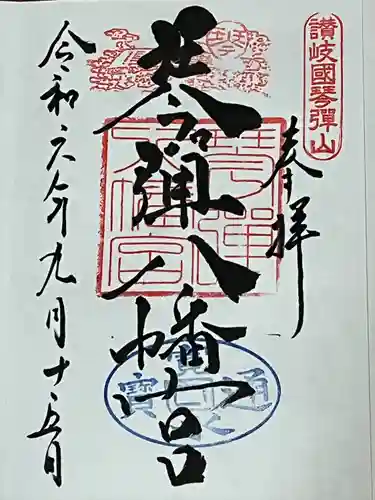 讃岐國琴彈山
奉拝
琴弾八幡宮
令和六年九月十五日